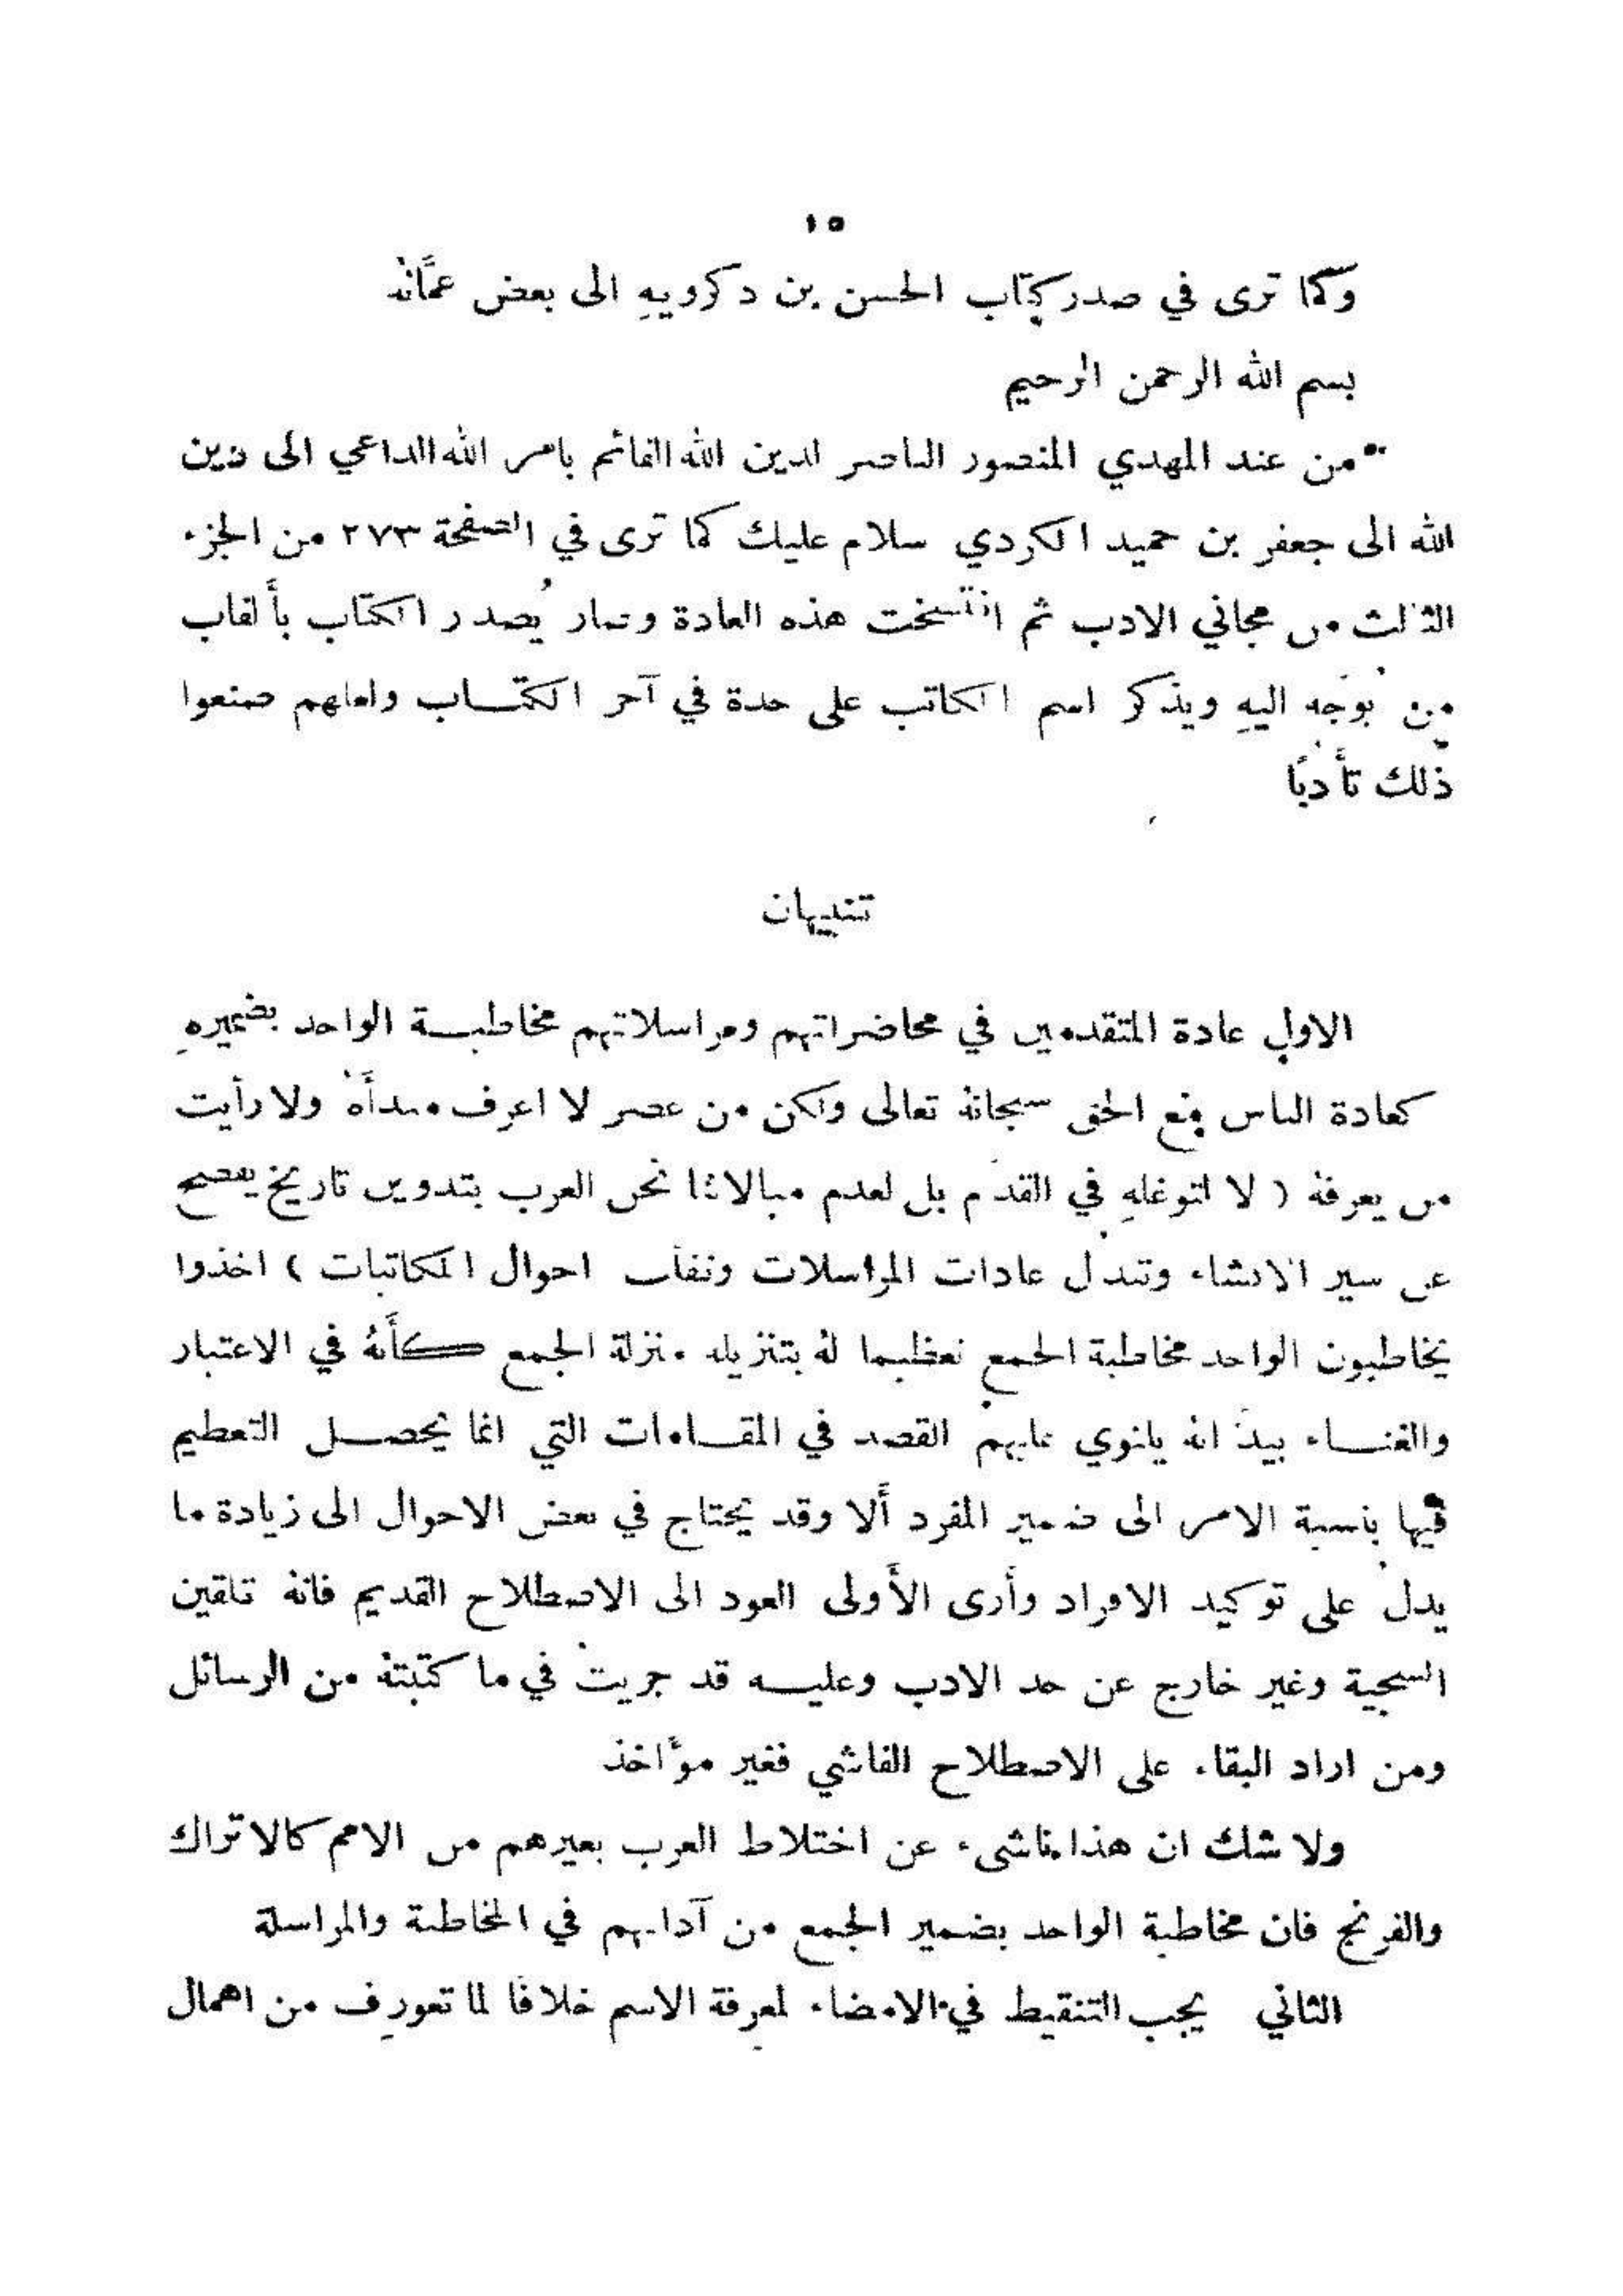 ١٥
وكما ترى في صدر كتاب الحسن بن دكرويهِ الى بعض عمَّاله
بسم الله الرحمن الرحيم
من عند المهدي المنصور الناصر لدين الله القائم بامر الله الداعي الى دين
الله الى جعفر بن حميد الكردي سلام عليك كما ترى في الصفحة ٢٧٣ من الجزء
الثالث من مجاني الادب ثم انتسخت هذه العادة وصار يُصدر الكتاب بأَلقاب
من توجَّه اليهِ ويذكر اسم الكاتب على حدة في آخر الكتاب ولعلهم صنعوا
ذلك تأَدبًا
تنبيهان
الاول عادة المتقدمين في محاضراتهم ومراسلاتهم مخاطبة الواحد بضميرهِ
كعادة الناس مع الحق سبحانهُ تعالى ولكن من عصر لا اعرف مبدأَهُ ولا رأَيت
من يعرفهُ ( لا لتوغلهِ في القدم بل لعدم مبالاتنا نحن العرب بتدوين تاريخ يفصح
عن سير الانشاء وتبدل عادات المراسلات وتقلب احوال المكاتبات ) اخذوا
يخاطبون الواحد مخاطبة الجمع تعظيما لهُ بتنزيله منزلة الجمع كأَنهُ في الاعتبار
والغناء بيد انه يلتوي عليهم القصد في المقامات التي انما يحصل التعظيم
فيها بنسبة الامر الى ضمير المفرد أَلا وقد يحتاج في بعض الاحوال الى زيادة ما
يدل على توكيد الافراد وأَرى الأَولى العود الى الاصطلاح القديم فانهُ تلقين
السجية وغير خارج عن حد الادب وعليه قد جريت في ما كتبتهُ من الرسائل
ومن اراد البقاء على الاصطلاح الفاشي فغير مؤَاخذ
ولا شك ان هذا ناشىء عن اختلاط العرب بغيرهم من الامم كالاتراك
والفرنج فان مخاطبة الواحد بضمير الجمع من آدابهم في المخاطبة والمراسلة
الثاني يجب التنقيط في الامضاء لمعرفة الاسم خلافًا لما تعورف من اهمال